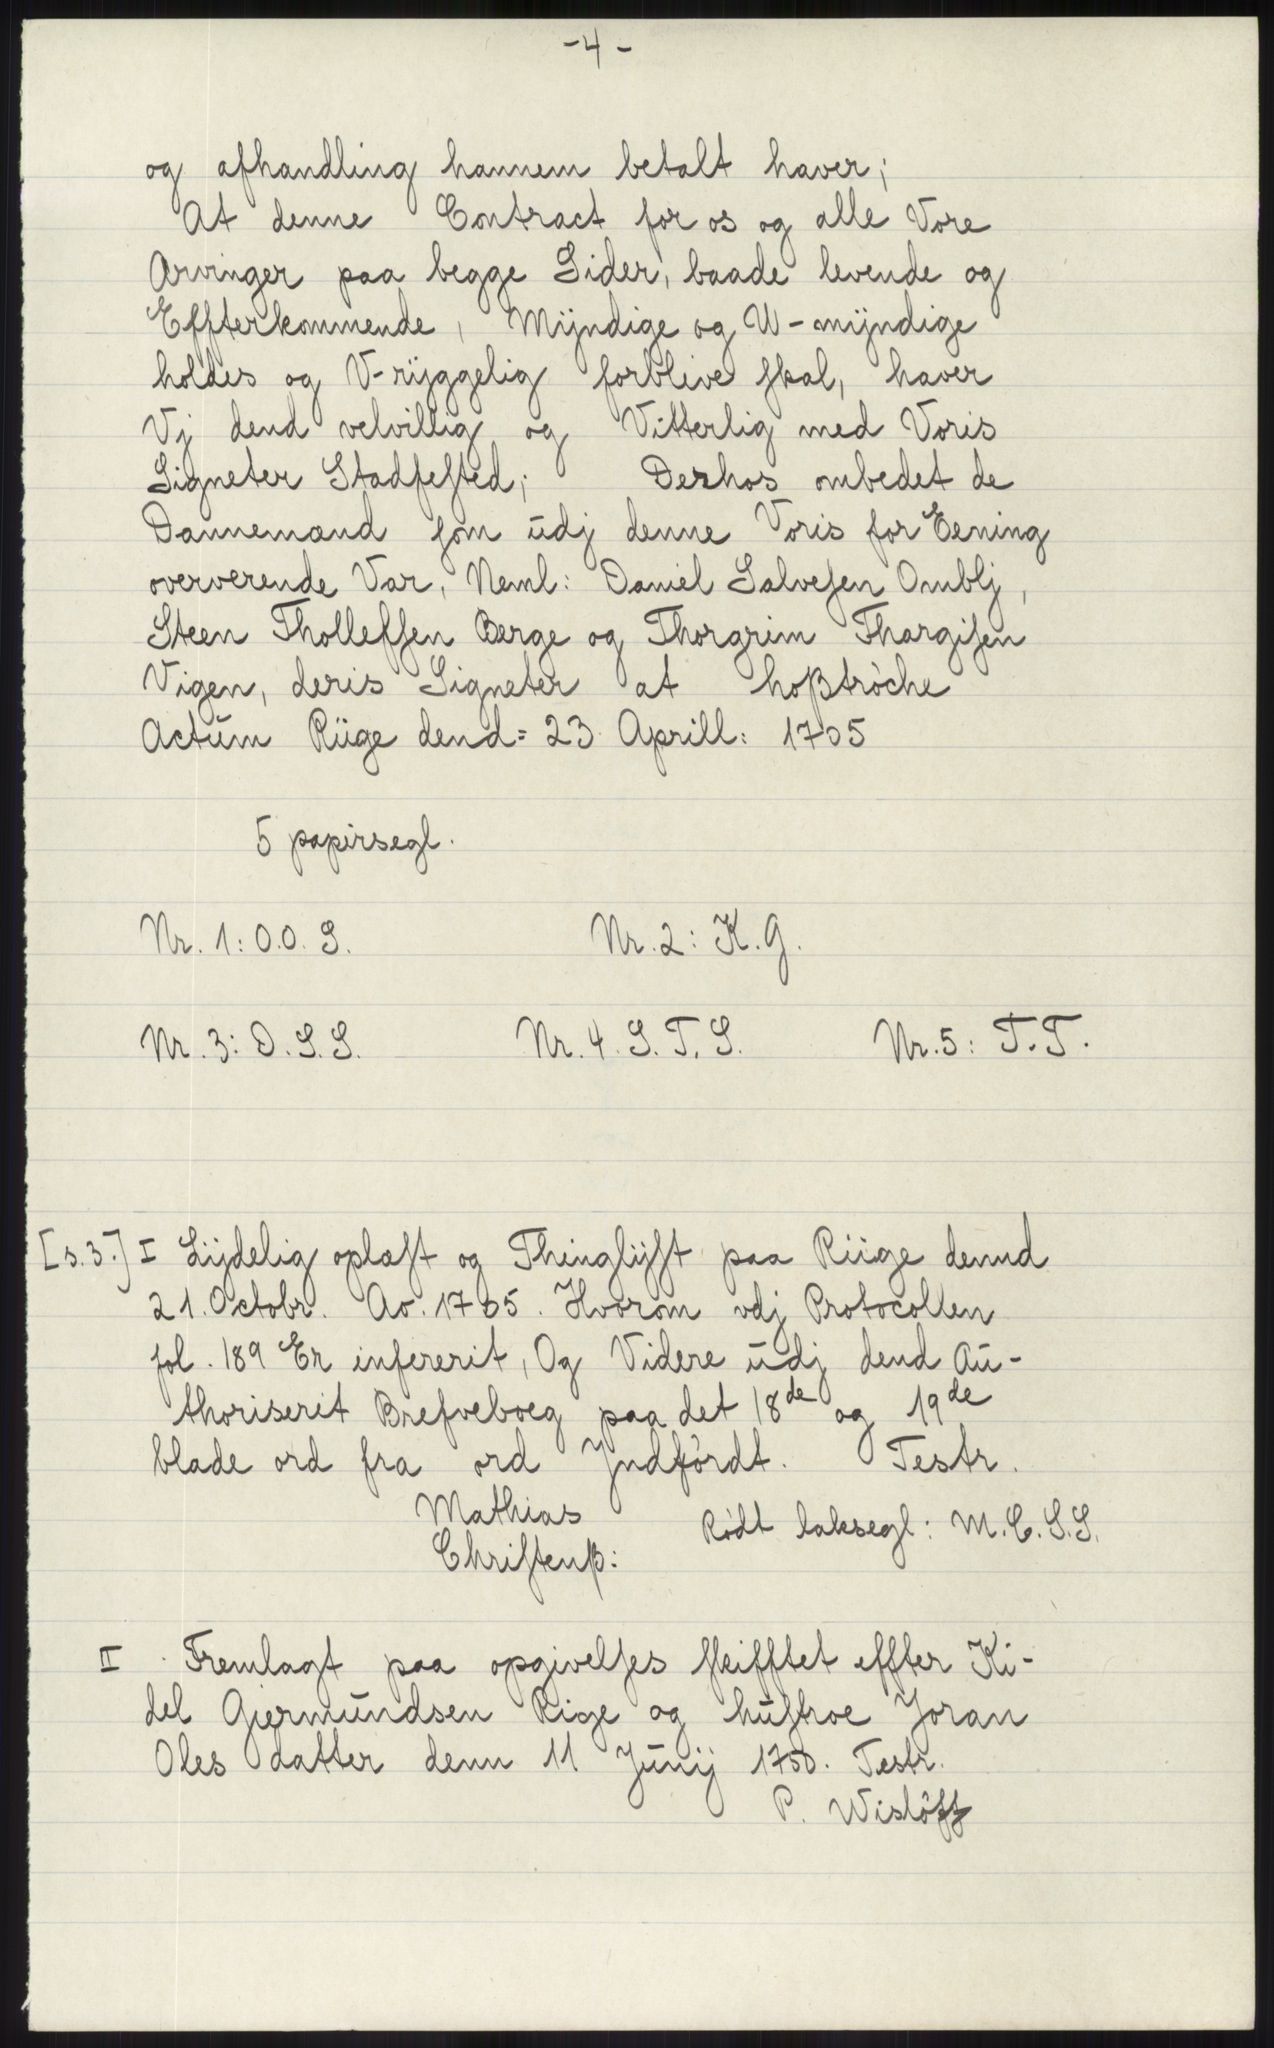 -4-
og afhandling hannem betalt haver;
At denne Contract for os og alle Vore
Arvinger paa begge Sider, baade levende og
Effterkommende, Mÿndige og U-mÿndige
holdes og V-rÿggelig forblive ſkal, haver
Vj dend velvillig og Vitterlig med Voris
Signeter Stadfeſted; Derhos ombedet de
Dannemænd ſom udj denne Voris for Eening
oververende Var, Neml: Daniel Salveſen Omblj,
Steen Tholleſſen Berge og Thorgrim Thorgiſen
Vigen, deris Signeter at hoßtröche
Actum Riige dend= 23 Aprill: 1705
5 papirsegl.
Nr. 1: O.O.S. Nr. 2: K.G.
Nr. 3: D.S.S. Nr. 4. S.T.S. Nr. 5: T.T.
[s.3.] I Lÿdelig oplæſt og Thinglÿſt paa Riige dennd
21. Octobr. Ao. 1705. Hvorom vdj Protocollen
fol. 189 Er inſererit, Og Videre udj dend Au-
thoriserit Brefveboeg paa det 18de og 19de
blade ord fra ord Jndfördt. Testr.
Mathias Rødt laksegl: M.C.S.S.
Chriſtenß:
II Fremlagt paa opgivelſes ſkifftet effter Ki-
del Giermundsen Rige og huſtroe Joran
Oles datter denn 11 Junij 1750. Testr.
P. Wislöff